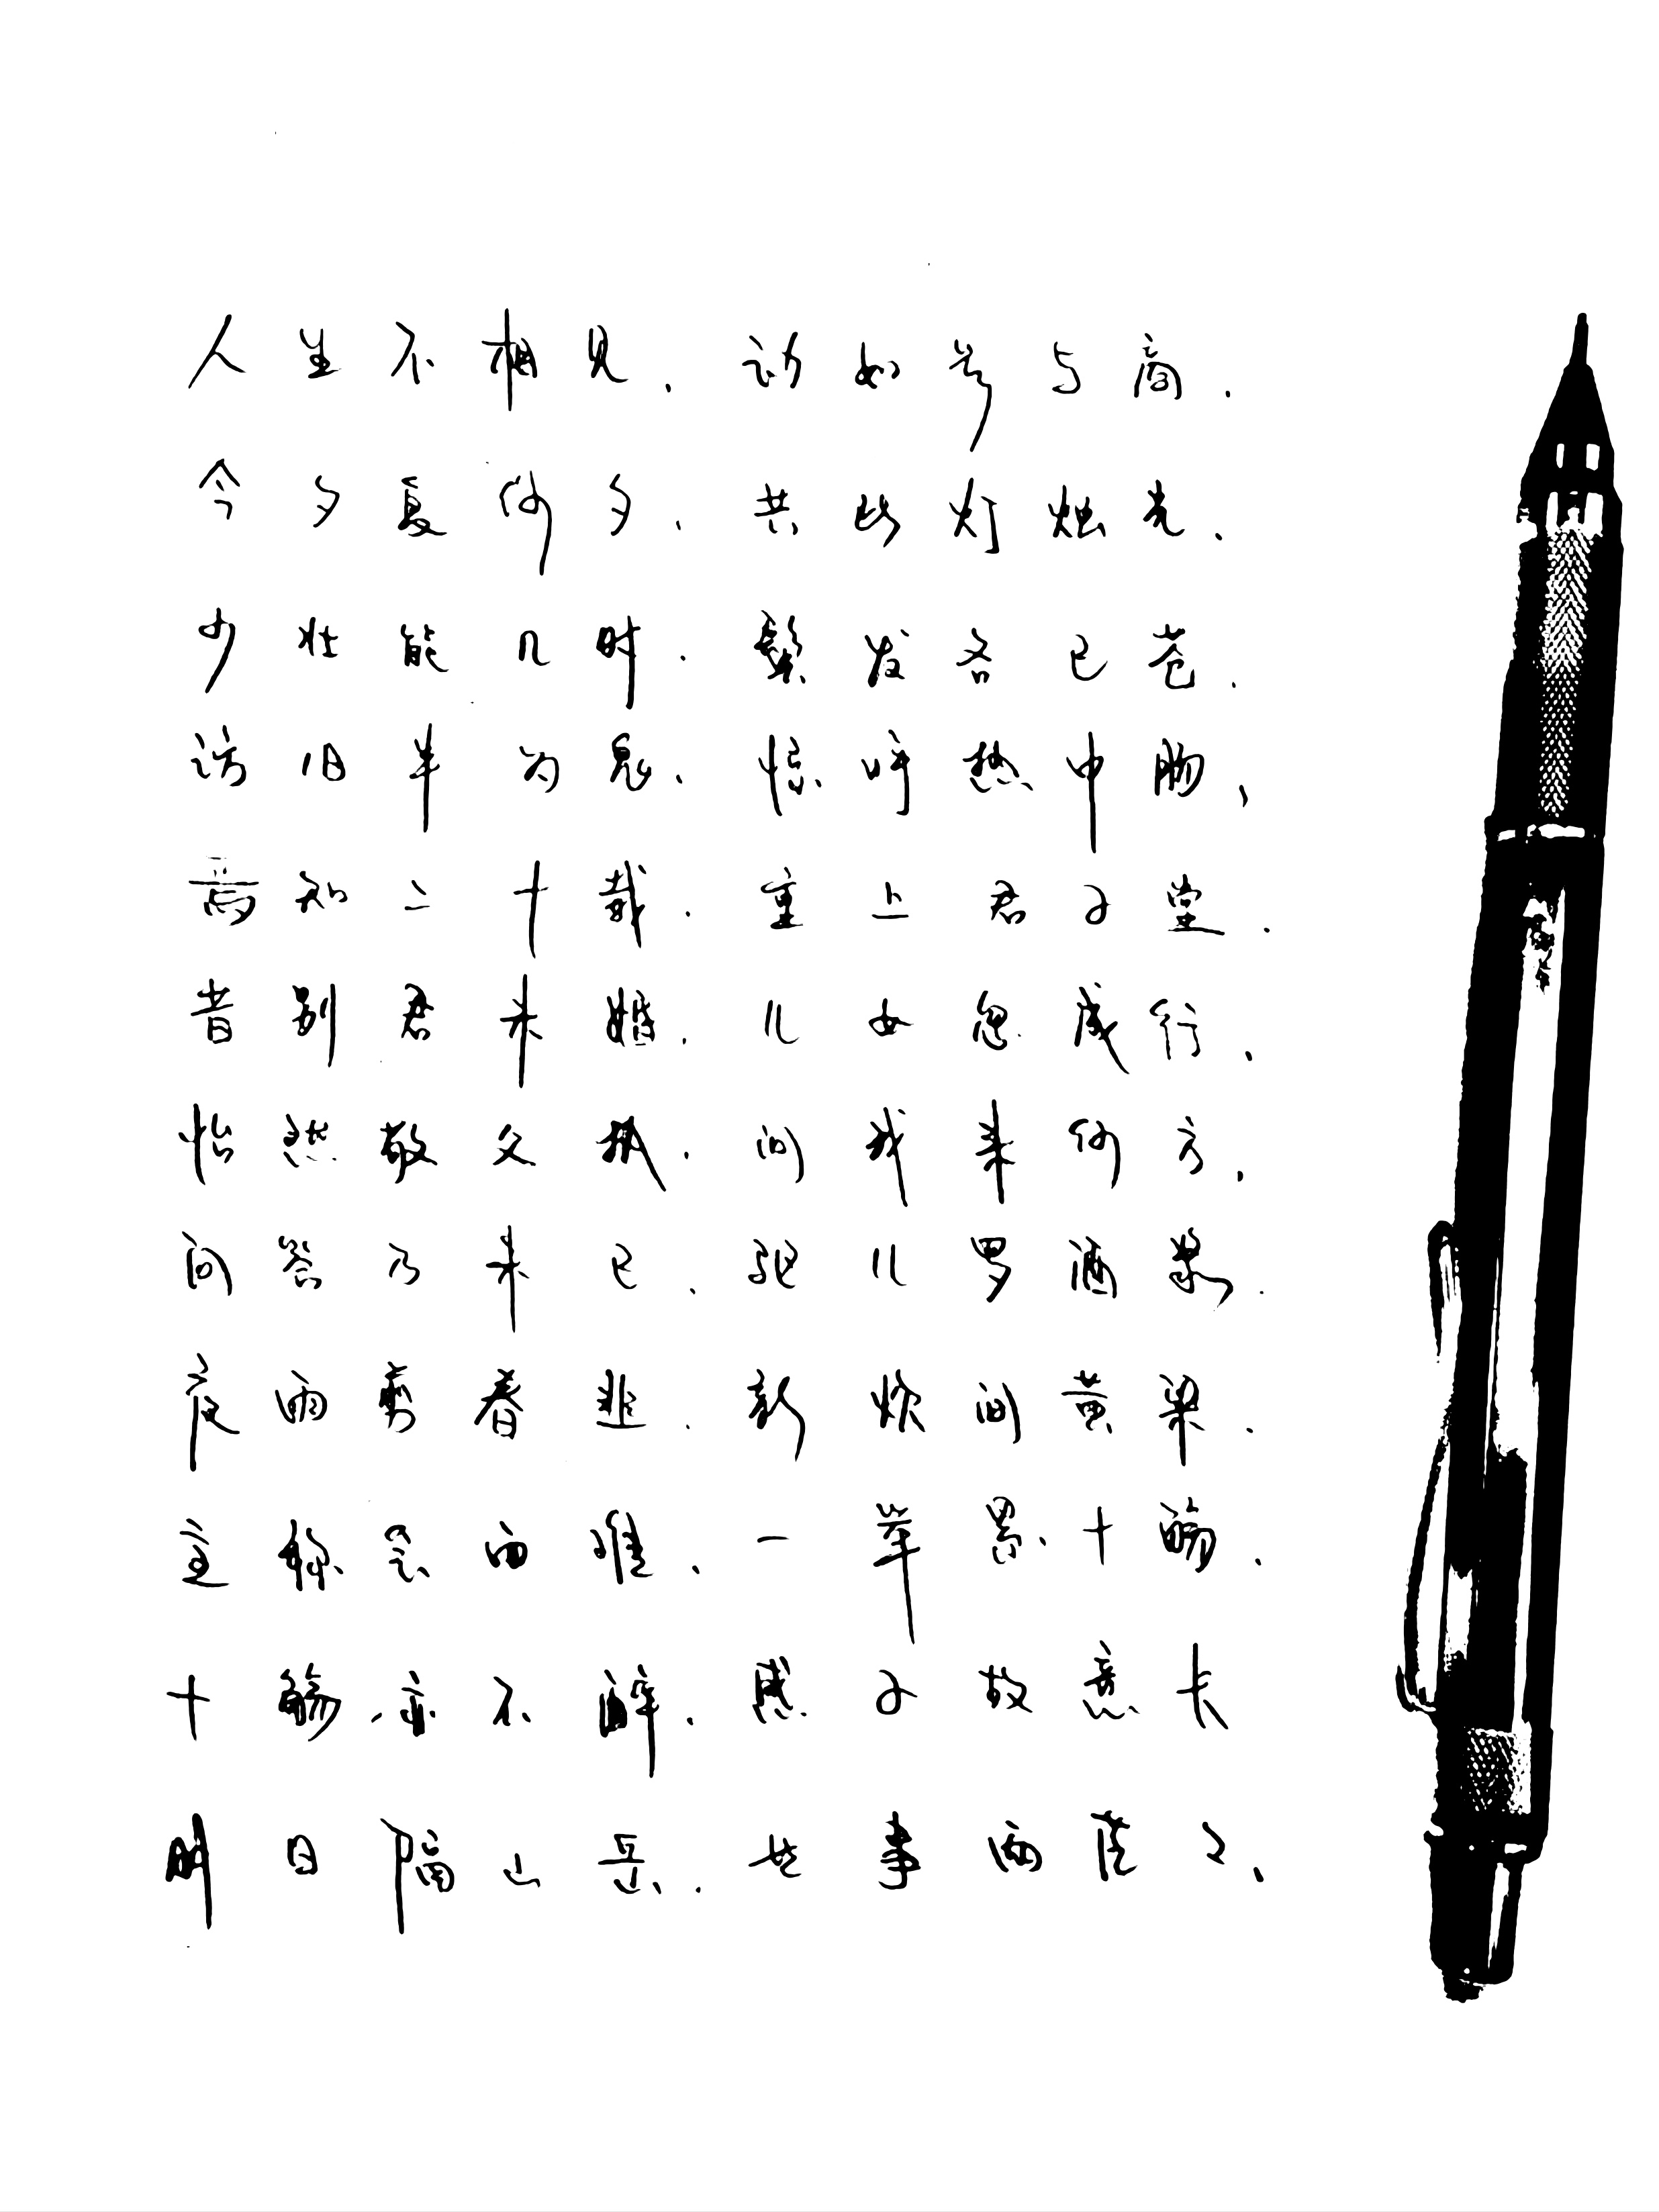 人生不相见.动如参与商.
今夕复何夕.共此灯烛光.
少壮能几时.鬓发各已苍.
访旧半为鬼.惊呼热中肠.
焉知二十载.重上君子堂.
昔别君未婚.儿女忽成行.
怡然敬父执.问我来何方.
问答乃未已.驱儿罗酒浆.
夜雨剪春韭.新炊间黄粱.
主称会面难.一举累十觞.
十觞亦不醉.感子故意长
明日隔山岳.世事两茫々.